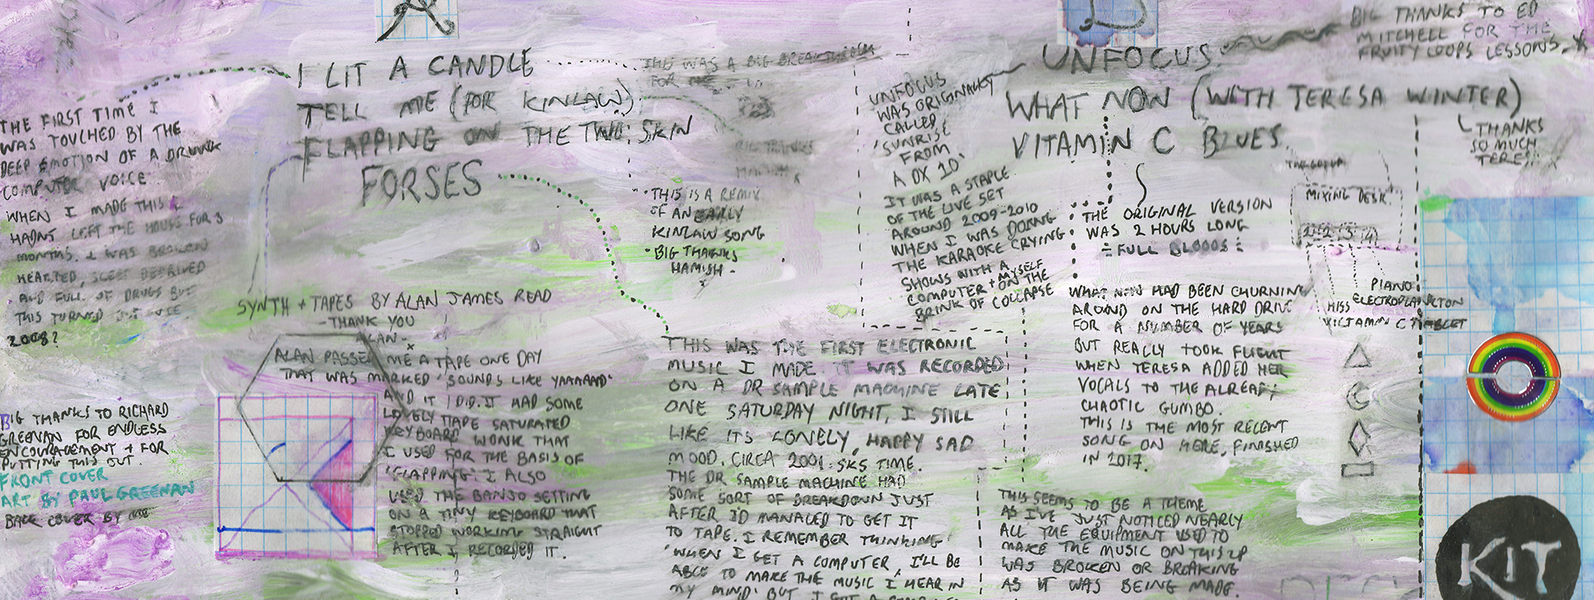 THE FIRST TIME I
WAS TOUCHED BY THE
DEEP EMOTION OF A DRUNK
COMPUTER VOICE.
WHEN I MADE THIS I
HADNT LEFT THE HOUSE FOR 3
MONTHS. I WAS BROKEN
HEARTED, SLEEP DEPRIVED
AND FULL OF DRUGS BUT
THIS TURNED OUT
2008?
BIG THANKS TO RICHARD
GREENAN FOR ENDLESS
ENCOURAGEMENT + FOR
PUTTING THIS OUT.
FRONT COVER
ART BY PAUL GREENAN
BACK COVER BY ME
I LIT A CANDLE
TELL ME (FOR KINLAW)
FLAPPING ON THE TWO SKIN
FORSES
THIS WAS A BIG BREAKTHROUGH
FOR ME
BIG THANKS
· THIS IS A REMIX
OF AN EARLY
KINLAW SONG
· BIG THANKS
HAMISH -
SYNTH + TAPES BY ALAN JAMES READ
- THANK YOU
ALAN - x
ALAN PASSED ME A TAPE ONE DAY
THAT WAS MARKED 'SOUNDS LIKE YAAAAAD'
AND IT DID. IT HAD SOME
LOVELY TAPE SATURATED
KEYBOARD WONK THAT
I USED FOR THE BASIS OF
'FLAPPING'. I ALSO
USED THE BANJO SETTING
ON A TINY KEYBOARD THAT
STOPPED WORKING STRAIGHT
AFTER I RECORDED IT.
THIS WAS THE FIRST ELECTRONIC
MUSIC I MADE. IT WAS RECORDED
ON A DR SAMPLE MACHINE LATE
ONE SATURDAY NIGHT, I STILL
LIKE ITS LONELY, HAPPY SAD
MOOD. CIRCA 2001. SKS TIME.
THE DR SAMPLE MACHINE HAD
SOME SORT OF BREAKDOWN JUST
AFTER I'D MANAGED TO GET IT
TO TAPE. I REMEMBER THINKING
'WHEN I GET A COMPUTER, I'LL BE
ABLE TO MAKE THE MUSIC I HEAR IN
MY MIND' BUT I GOT A
UNFOCUS
WHAT NOW (WITH TERESA WINTER)
VITAMIN C BLUES
BIG THANKS TO ED
MITCHELL FOR THE
FRUITY LOOPS LESSONS. X
THANKS
SO MUCH
TERESA X
UNFOCUS
WAS ORIGINALLY
CALLED
'SUNRISE
FROM
A DX 10'
IT WAS A STAPLE
OF THE LIVE SET
AROUND 2009-2010
WHEN I WAS DOING
THE KARAOKE CRYING
SHOWS WITH A
COMPUTER + MYSELF
ON THE
BRINK OF COLLAPSE
THE ORIGINAL VERSION
WAS 2 HOURS LONG
FULL BLOODS
WHAT NOW HAD BEEN CHURNING
AROUND ON THE HARD DRIVE
FOR A NUMBER OF YEARS
BUT REALLY TOOK FLIGHT
WHEN TERESA ADDED HER
VOCALS TO THE ALREADY
CHAOTIC GUMBO.
THIS IS THE MOST RECENT
SONG ON HERE, FINISHED
IN 2017.
THIS SEEMS TO BE A THEME
AS I'VE JUST NOTICED NEARLY
ALL THE EQUIPMENT USED TO
MAKE THE MUSIC ON THIS LP
WAS BROKEN OR BREAKING
AS IT WAS BEING MADE.
MIXING DESK
PIANO
ELECTROPLANKTON
HISS
VITAMIN C TABLET
KIT